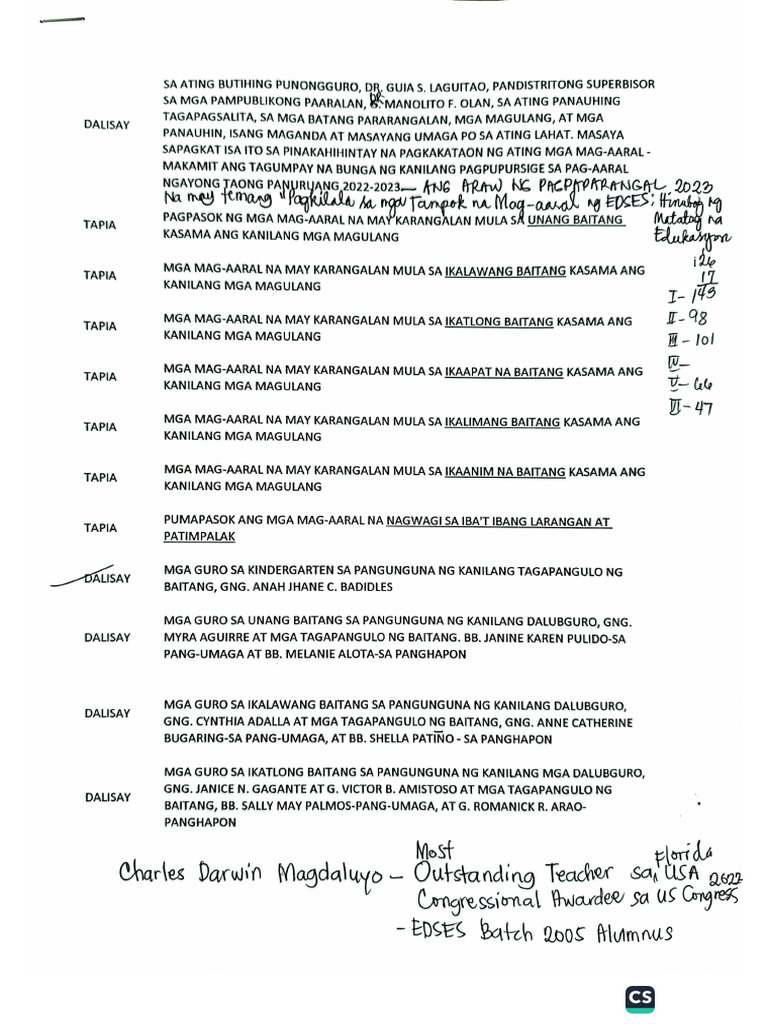 SA ATING BUTIHING PUNONGGURO, DR. GUIA S. LAGUITAO, PANDISTRITONG SUPERBISOR
SA MGA PAMPUBLIKONG PAARALAN, DR. MANOLITO F. OLAN, SA ATING PANAUHING
DALISAY TAGAPAGSALITA, SA MGA BATANG PARARANGALAN, MGA MAGULANG, AT MGA
PANAUHIN, ISANG MAGANDA AT MASAYANG UMAGA PO SA ATING LAHAT. MASAYA
SAPAGKAT ISA ITO SA PINAKAHIHINTAY NA PAGKAKATAON NG ATING MGA MAG-AARAL -
MAKAMIT ANG TAGUMPAY NA BUNGA NG KANILANG PAGPUPURSIGE SA PAG-AARAL
NGAYONG TAONG PANURUANG 2022-2023 — ANG ARAW NG PAGPAPARANGAL 2023
Na may temang "Pagkilala sa mga Tampok na Mag-aaral ng EDSES: Hinubog ng
Matatag na
Edukasyon
TAPIA PAGPASOK NG MGA MAG-AARAL NA MAY KARANGALAN MULA SA UNANG BAITANG
KASAMA ANG KANILANG MGA MAGULANG
126
17
I - 143
II - 98
III - 101
IV -
V - 66
VI - 47
TAPIA MGA MAG-AARAL NA MAY KARANGALAN MULA SA IKALAWANG BAITANG KASAMA ANG
KANILANG MGA MAGULANG
TAPIA MGA MAG-AARAL NA MAY KARANGALAN MULA SA IKATLONG BAITANG KASAMA ANG
KANILANG MGA MAGULANG
TAPIA MGA MAG-AARAL NA MAY KARANGALAN MULA SA IKAAPAT NA BAITANG KASAMA ANG
KANILANG MGA MAGULANG
TAPIA MGA MAG-AARAL NA MAY KARANGALAN MULA SA IKALIMANG BAITANG KASAMA ANG
KANILANG MGA MAGULANG
TAPIA MGA MAG-AARAL NA MAY KARANGALAN MULA SA IKAANIM NA BAITANG KASAMA ANG
KANILANG MGA MAGULANG
TAPIA PUMAPASOK ANG MGA MAG-AARAL NA NAGWAGI SA IBA'T IBANG LARANGAN AT
PATIMPALAK
DALISAY MGA GURO SA KINDERGARTEN SA PANGUNGUNA NG KANILANG TAGAPANGULO NG
BAITANG, GNG. ANAH JHANE C. BADIDLES
MGA GURO SA UNANG BAITANG SA PANGUNGUNA NG KANILANG DALUBGURO, GNG.
DALISAY MYRA AGUIRRE AT MGA TAGAPANGULO NG BAITANG. BB. JANINE KAREN PULIDO-SA
PANG-UMAGA AT BB. MELANIE ALOTA-SA PANGHAPON
MGA GURO SA IKALAWANG BAITANG SA PANGUNGUNA NG KANILANG DALUBGURO,
DALISAY GNG. CYNTHIA ADALLA AT MGA TAGAPANGULO NG BAITANG, GNG. ANNE CATHERINE
BUGARING-SA PANG-UMAGA, AT BB. SHELLA PATIÑO - SA PANGHAPON
MGA GURO SA IKATLONG BAITANG SA PANGUNGUNA NG KANILANG MGA DALUBGURO,
GNG. JANICE N. GAGANTE AT G. VICTOR B. AMISTOSO AT MGA TAGAPANGULO NG
DALISAY BAITANG, BB. SALLY MAY PALMOS-PANG-UMAGA, AT G. ROMANICK R. ARAO-
PANGHAPON
Most
Charles Darwin Magdaluyo - Outstanding Teacher sa Florida USA 2022
Congressional Awardee sa US Congress
- EDSES Batch 2005 Alumnus
CS